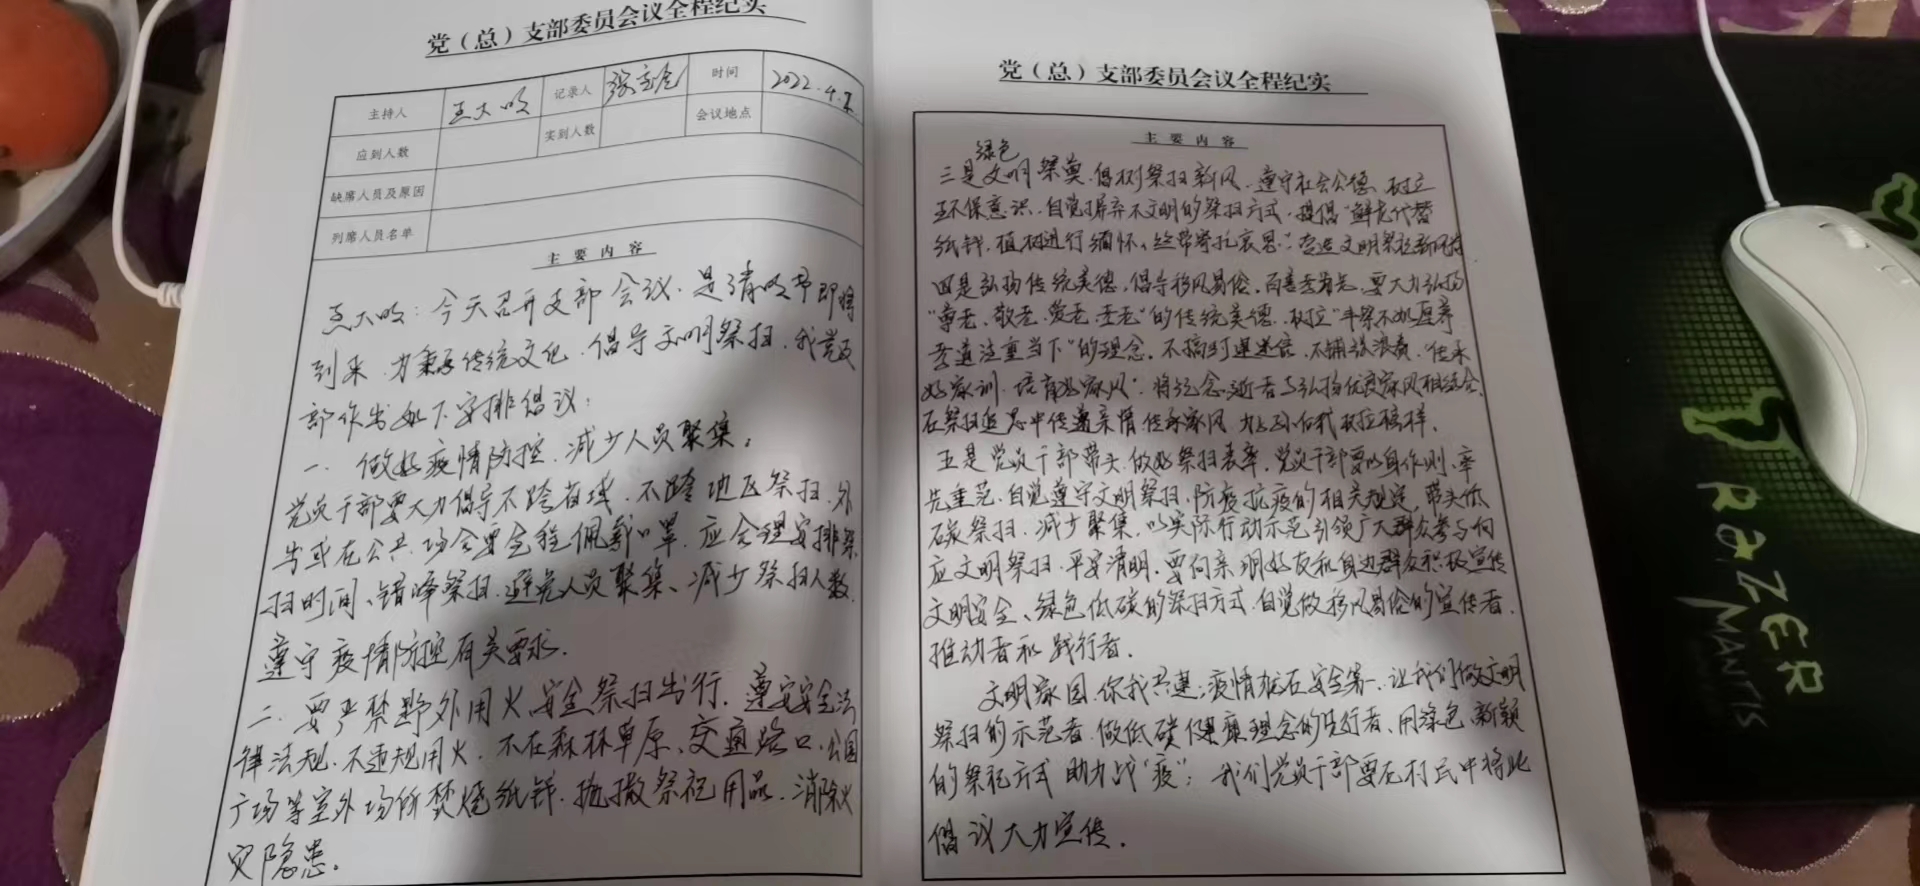 党（总）支部委员会议全程纪实
主持人 王大明 记录人 时间 2022.4.
应到人数 实到人数 会议地点
缺席人员及原因
列席人员名单
主要内容
王大明：今天召开支部会议，是清明节即将
到来，为秉承传统文化，倡导文明祭扫，我党支
部作出如下安排倡议：
一、做好疫情防控，减少人员聚集。
党员干部要大力倡导不跨省域、不跨地区祭扫，外
出或在公共场合要全程佩戴口罩，应合理安排祭
扫时间、错峰祭扫，避免人员聚集、减少祭扫人数，
遵守疫情防控有关要求。
二、要严禁野外用火，安全祭扫出行，遵安安全法
律法规，不违规用火，不在森林草原、交通路口、公园
广场等室外场所焚烧纸钱，抛撒祭祀用品，消除火
灾隐患。
党（总）支部委员会议全程纪实
主要内容
绿色
三是文明祭奠，倡树祭扫新风，遵守社会公德，树立
环保意识，自觉摒弃不文明的祭扫方式，提倡“鲜花代替
纸钱，植树进行缅怀，丝带寄托哀思”，营造文明祭祀新风尚
四是弘扬传统美德，倡导移风易俗，百善孝为先，要大力弘扬
“尊老、敬老、爱老、孝老”的传统美德，树立“丰祭不如厚养
孝道注重当下”的理念，不搞封建迷信，不铺张浪费，“传承
好家训，培育好家风”，将纪念逝者与弘扬优良家风相结合，
在祭扫追思中传递亲情传承家风，为下一代树立榜样。
五是党员干部带头，做好祭扫表率，党员干部要以身作则、率
先垂范，自觉遵守文明祭扫，防疫抗疫的相关规定，带头低
碳祭扫，减少聚集，以实际行动示范引领广大群众参与响
应文明祭扫，平安清明，要向亲朋好友和身边群众积极宣传
文明安全、绿色低碳的祭扫方式，自觉做移风易俗的宣传者，
推动者和践行者。
文明家园，你我共建；疫情抗在安全第一，让我们做文明
祭扫的示范者，做低碳健康理念的先行者，用绿色、新颖
的祭祀方式助力战“疫”；我们党员干部要在村民中将此
倡议大力宣传。
RAZER
MANTIS